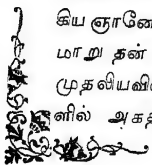 கிய ஞானே
மாறு தன்
முதலியவி
ளில் அகத